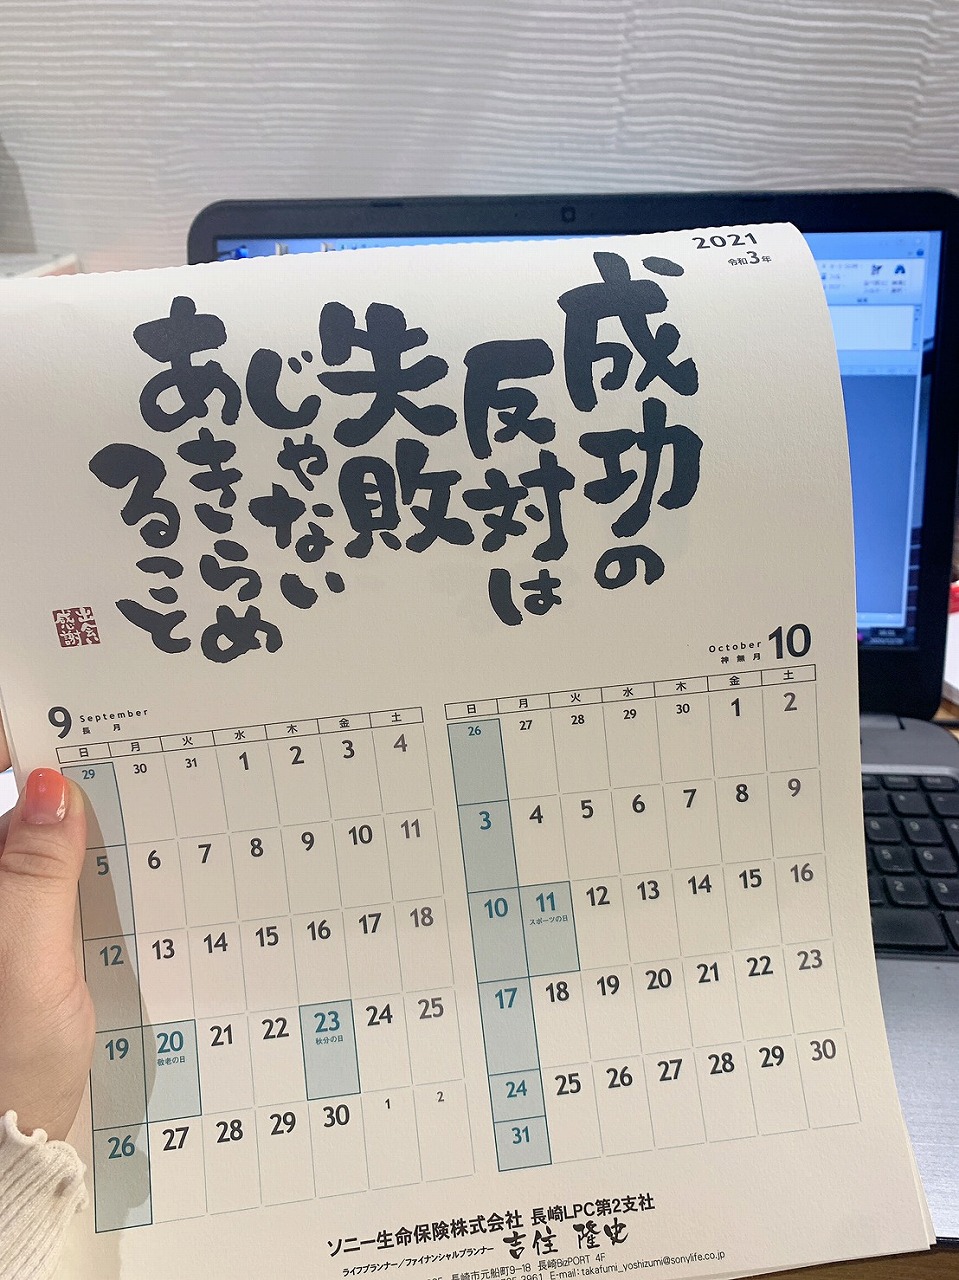 2021
令和3年
成功の
反対は
失敗
じゃない
あきらめ
ること
出会い
感謝
9 September
長月
日 月 火 水 木 金 土
29 30 31 1 2 3 4
5 6 7 8 9 10 11
12 13 14 15 16 17 18
19 20 21 22 23 24 25
敬老の日 秋分の日
26 27 28 29 30 1 2
October 10
神無月
日 月 火 水 木 金 土
26 27 28 29 30 1 2
3 4 5 6 7 8 9
10 11 12 13 14 15 16
スポーツの日
17 18 19 20 21 22 23
24 25 26 27 28 29 30
31
ソニー生命保険株式会社 長崎LPC第2支社
ライフプランナー/ファイナンシャルプランナー 吉住 隆史
長崎市元船町9-18 長崎BizPORT 4F
3961 E-mail:takafumi_yoshizumi@sonylife.co.jp